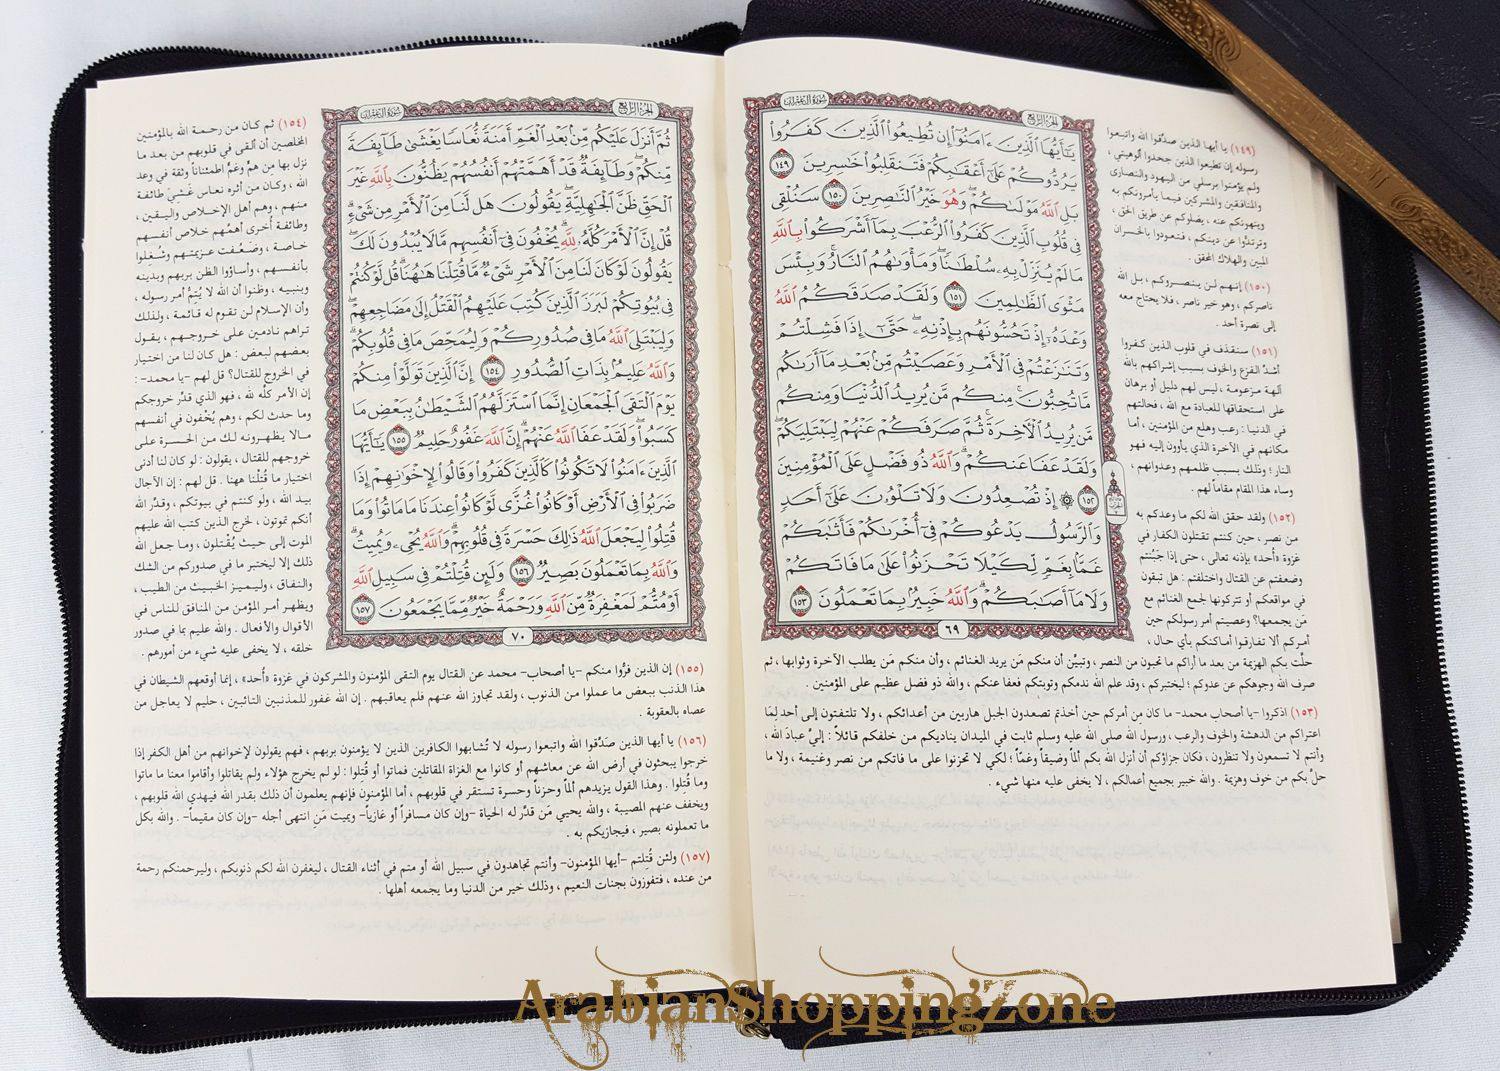 سورة آل عمران
الجزء الرابع
يَٰٓأَيُّهَا ٱلَّذِينَ ءَامَنُوٓا۟ إِن تُطِيعُوا۟ ٱلَّذِينَ كَفَرُوا۟
يَرُدُّوكُمْ عَلَىٰٓ أَعْقَٰبِكُمْ فَتَنقَلِبُوا۟ خَٰسِرِينَ ١٤٩
بَلِ ٱللَّهُ مَوْلَىٰكُمْ ۖ وَهُوَ خَيْرُ ٱلنَّٰصِرِينَ ١٥٠ سَنُلْقِى
فِى قُلُوبِ ٱلَّذِينَ كَفَرُوا۟ ٱلرُّعْبَ بِمَآ أَشْرَكُوا۟ بِٱللَّهِ
مَا لَمْ يُنَزِّلْ بِهِۦ سُلْطَٰنًا ۖ وَمَأْوَىٰهُمُ ٱلنَّارُ ۚ وَبِئْسَ
مَثْوَى ٱلظَّٰلِمِينَ ١٥١ وَلَقَدْ صَدَقَكُمُ ٱللَّهُ
وَعْدَهُۥٓ إِذْ تَحُسُّونَهُم بِإِذْنِهِۦ ۖ حَتَّىٰٓ إِذَا فَشِلْتُمْ
وَتَنَٰزَعْتُمْ فِى ٱلْأَمْرِ وَعَصَيْتُم مِّنۢ بَعْدِ مَآ أَرَىٰكُم
مَّا تُحِبُّونَ ۚ مِنكُم مَّن يُرِيدُ ٱلدُّنْيَا وَمِنكُم
مَّن يُرِيدُ ٱلْءَاخِرَةَ ۚ ثُمَّ صَرَفَكُمْ عَنْهُمْ لِيَبْتَلِيَكُمْ ۖ
وَلَقَدْ عَفَا عَنكُمْ ۗ وَٱللَّهُ ذُو فَضْلٍ عَلَى ٱلْمُؤْمِنِينَ
١٥٢ ۞ إِذْ تُصْعِدُونَ وَلَا تَلْوُۥنَ عَلَىٰٓ أَحَدٍ
وَٱلرَّسُولُ يَدْعُوكُمْ فِىٓ أُخْرَىٰكُمْ فَأَثَٰبَكُمْ
غَمًّۢا بِغَمٍّ لِّكَيْلَا تَحْزَنُوا۟ عَلَىٰ مَا فَاتَكُمْ
وَلَا مَآ أَصَٰبَكُمْ ۗ وَٱللَّهُ خَبِيرٌۢ بِمَا تَعْمَلُونَ ١٥٣
٦٩
(١٤٩) يا أيها الذين صدَّقوا الله واتبعوا
رسوله إن تطيعوا الذين جحدوا ألوهيتي ،
ولم يؤمنوا برسلي من اليهود والنصارى
والمنافقين والمشركين فيما يأمرونكم به
وينهونكم عنه ، يضلوكم عن طريق الحق ،
وترتدُّوا عن دينكم ، فتعودوا بالخسران
المبين والهلاك المحقق .
(١٥٠) إنهم لن ينصروكم ، بل الله
ناصركم ، وهو خير ناصر ، فلا يحتاج معه
إلى نصرة أحد .
(١٥١) سنقذف في قلوب الذين كفروا
أشدَّ الفزع والخوف بسبب إشراكهم بالله
آلهة مزعومة ، ليس لهم دليل أو برهان
على استحقاقها للعبادة مع الله ، فحالتهم
في الدنيا : رعب وهلع من المؤمنين ، أما
مكانهم في الآخرة الذي يأوون إليه فهو
النار ؛ وذلك بسبب ظلمهم وعدوانهم ،
وساء هذا المقام مقاماً لهم .
(١٥٢) ولقد حقق الله لكم ما وعدكم به
من نصر ، حين كنتم تقتلون الكفار في
غزوة «أحد» بإذنه تعالى ، حتى إذا جَبُنتم
وضعفتم عن القتال واختلفتم : هل تبقون
في مواقعكم أو تتركونها لجمع الغنائم مع
مَن يجمعها؟ وعصيتم أمر رسولكم حين
أمركم ألا تفارقوا أماكنكم بأي حال ،
حلَّت بكم الهزيمة من بعد ما أراكم ما تحبون من النصر ، وتبيَّن أن منكم مَن يريد الغنائم ، وأن منكم مَن يطلب الآخرة وثوابها ، ثم
صرف الله وجوهكم عن عدوكم ؛ ليختبركم ، وقد علم الله ندمكم وتوبتكم فعفا عنكم ، والله ذو فضل عظيم على المؤمنين .
(١٥٣) اذكروا -يا أصحاب محمد- ما كان مِن أمركم حين أخذتم تصعدون الجبل هاربين من أعدائكم ، ولا تلتفتون إلى أحد لِمَا
اعتراكم من الدهشة والخوف والرعب ، ورسول الله صلى الله عليه وسلم ثابت في الميدان يناديكم من خلفكم قائلاً : إليَّ عبادَ الله ،
وأنتم لا تسمعون ولا تنظرون ، فكان جزاؤكم أن أنزل الله بكم ألماً وضيقاً وغمّاً ؛ لكي لا تحزنوا على ما فاتكم من نصر وغنيمة ، ولا ما
حلَّ بكم من خوف وهزيمة . والله خبير بجميع أعمالكم ، لا يخفى عليه منها شيء .
سورة آل عمران
الجزء الرابع
ثُمَّ أَنزَلَ عَلَيْكُم مِّنۢ بَعْدِ ٱلْغَمِّ أَمَنَةً نُّعَاسًا يَغْشَىٰ طَآئِفَةً
مِّنكُمْ ۖ وَطَآئِفَةٌ قَدْ أَهَمَّتْهُمْ أَنفُسُهُمْ يَظُنُّونَ بِٱللَّهِ غَيْرَ
ٱلْحَقِّ ظَنَّ ٱلْجَٰهِلِيَّةِ ۖ يَقُولُونَ هَل لَّنَا مِنَ ٱلْأَمْرِ مِن شَىْءٍ ۗ
قُلْ إِنَّ ٱلْأَمْرَ كُلَّهُۥ لِلَّهِ ۗ يُخْفُونَ فِىٓ أَنفُسِهِم مَّا لَا يُبْدُونَ لَكَ ۖ
يَقُولُونَ لَوْ كَانَ لَنَا مِنَ ٱلْأَمْرِ شَىْءٌ مَّا قُتِلْنَا هَٰهُنَا ۗ قُل لَّوْ كُنتُمْ
فِى بُيُوتِكُمْ لَبَرَزَ ٱلَّذِينَ كُتِبَ عَلَيْهِمُ ٱلْقَتْلُ إِلَىٰ مَضَاجِعِهِمْ ۖ
وَلِيَبْتَلِىَ ٱللَّهُ مَا فِى صُدُورِكُمْ وَلِيُمَحِّصَ مَا فِى قُلُوبِكُمْ ۗ
وَٱللَّهُ عَلِيمٌۢ بِذَاتِ ٱلصُّدُورِ ١٥٤ إِنَّ ٱلَّذِينَ تَوَلَّوْا۟ مِنكُمْ
يَوْمَ ٱلْتَقَى ٱلْجَمْعَانِ إِنَّمَا ٱسْتَزَلَّهُمُ ٱلشَّيْطَٰنُ بِبَعْضِ مَا
كَسَبُوا۟ ۖ وَلَقَدْ عَفَا ٱللَّهُ عَنْهُمْ ۗ إِنَّ ٱللَّهَ غَفُورٌ حَلِيمٌ ١٥٥ يَٰٓأَيُّهَا
ٱلَّذِينَ ءَامَنُوا۟ لَا تَكُونُوا۟ كَٱلَّذِينَ كَفَرُوا۟ وَقَالُوا۟ لِإِخْوَٰنِهِمْ إِذَا
ضَرَبُوا۟ فِى ٱلْأَرْضِ أَوْ كَانُوا۟ غُزًّى لَّوْ كَانُوا۟ عِندَنَا مَا مَاتُوا۟ وَمَا
قُتِلُوا۟ لِيَجْعَلَ ٱللَّهُ ذَٰلِكَ حَسْرَةً فِى قُلُوبِهِمْ ۗ وَٱللَّهُ يُحْىِۦ وَيُمِيتُ ۗ
وَٱللَّهُ بِمَا تَعْمَلُونَ بَصِيرٌ ١٥٦ وَلَئِن قُتِلْتُمْ فِى سَبِيلِ ٱللَّهِ
أَوْ مُتُّمْ لَمَغْفِرَةٌ مِّنَ ٱللَّهِ وَرَحْمَةٌ خَيْرٌ مِّمَّا يَجْمَعُونَ ١٥٧
٧٠
(١٥٤) ثم كان من رحمة الله بالمؤمنين
المخلصين أن ألقى في قلوبهم من بعد ما
نزل بها من همٍّ وغمٍّ اطمئناناً وثقة في وعد
الله ، وكان من أثره نعاس غَشِيَ طائفة
منهم ، وهم أهل الإخلاص واليقين ،
وطائفة أُخرى أهمَّهم خلاص أنفسهم
خاصة ، وضَعُفَت عزيمتهم وشُغِلوا
بأنفسهم ، وأساؤوا الظن بربهم وبدينه
وبنبيه ، وظنوا أن الله لا يُتِمُّ أمر رسوله ،
وأن الإسلام لن تقوم له قائمة ، ولذلك
تراهم نادمين على خروجهم ، يقول
بعضهم لبعض : هل كان لنا من اختيار
في الخروج للقتال؟ قل لهم -يا محمد- :
إن الأمر كلَّه لله ، فهو الذي قدَّر خروجكم
وما حدث لكم ، وهم يُخْفون في أنفسهم
مالا يظهرونه لك من الحسرة على
خروجهم للقتال ، يقولون : لو كان لنا أدنى
اختيار ما قُتلْنا ههنا . قل لهم : إن الآجال
بيد الله ، ولو كنتم في بيوتكم ، وقدَّر الله
أنكم تموتون ، لخرج الذين كتب الله عليهم
الموت إلى حيث يُقْتلون ، وما جعل الله
ذلك إلا ليختبر ما في صدوركم من الشك
والنفاق ، وليميز الخبيث من الطيب ،
ويظهر أمر المؤمن من المنافق للناس في
الأقوال والأفعال . والله عليم بما في صدور
خلقه ، لا يخفى عليه شيء من أمورهم .
(١٥٥) إن الذين فرُّوا منكم -يا أصحاب- محمد عن القتال يوم التقى المؤمنون والمشركون في غزوة «أُحد» ، إنما أوقعهم الشيطان في
هذا الذنب ببعض ما عملوا من الذنوب ، ولقد تجاوز الله عنهم فلم يعاقبهم . إن الله غفور للمذنبين التائبين ، حليم لا يعاجل من
عصاه بالعقوبة .
(١٥٦) يا أيها الذين صَدَّقوا الله واتبعوا رسوله لا تُشابهوا الكافرين الذين لا يؤمنون بربهم ، فهم يقولون لإخوانهم من أهل الكفر إذا
خرجوا يبحثون في أرض الله عن معاشهم أو كانوا مع الغزاة المقاتلين فماتوا أو قُتلوا : لو لم يخرج هؤلاء ولم يقاتلوا وأقاموا معنا ما ماتوا
وما قُتلوا . وهذا القول يزيدهم ألماً وحزناً وحسرة تستقر في قلوبهم ، أما المؤمنون فإنهم يعلمون أن ذلك بقدر الله فيهدي الله قلوبهم ،
ويخفف عنهم المصيبة ، والله يحيي مَن قدَّر له الحياة -وإن كان مسافراً أو غازياً- ويميت مَن انتهى أجله -وإن كان مقيماً- . والله بكل
ما تعملونه بصير ، فيجازيكم به .
(١٥٧) ولئن قُتلتم -أيها المؤمنون- وأنتم تجاهدون في سبيل الله أو متم في أثناء القتال ، ليغفرن الله لكم ذنوبكم ، وليرحمنكم رحمة
من عنده ، فتفوزون بجنات النعيم ، وذلك خير من الدنيا وما يجمعه أهلها .
ArabianShoppingZone